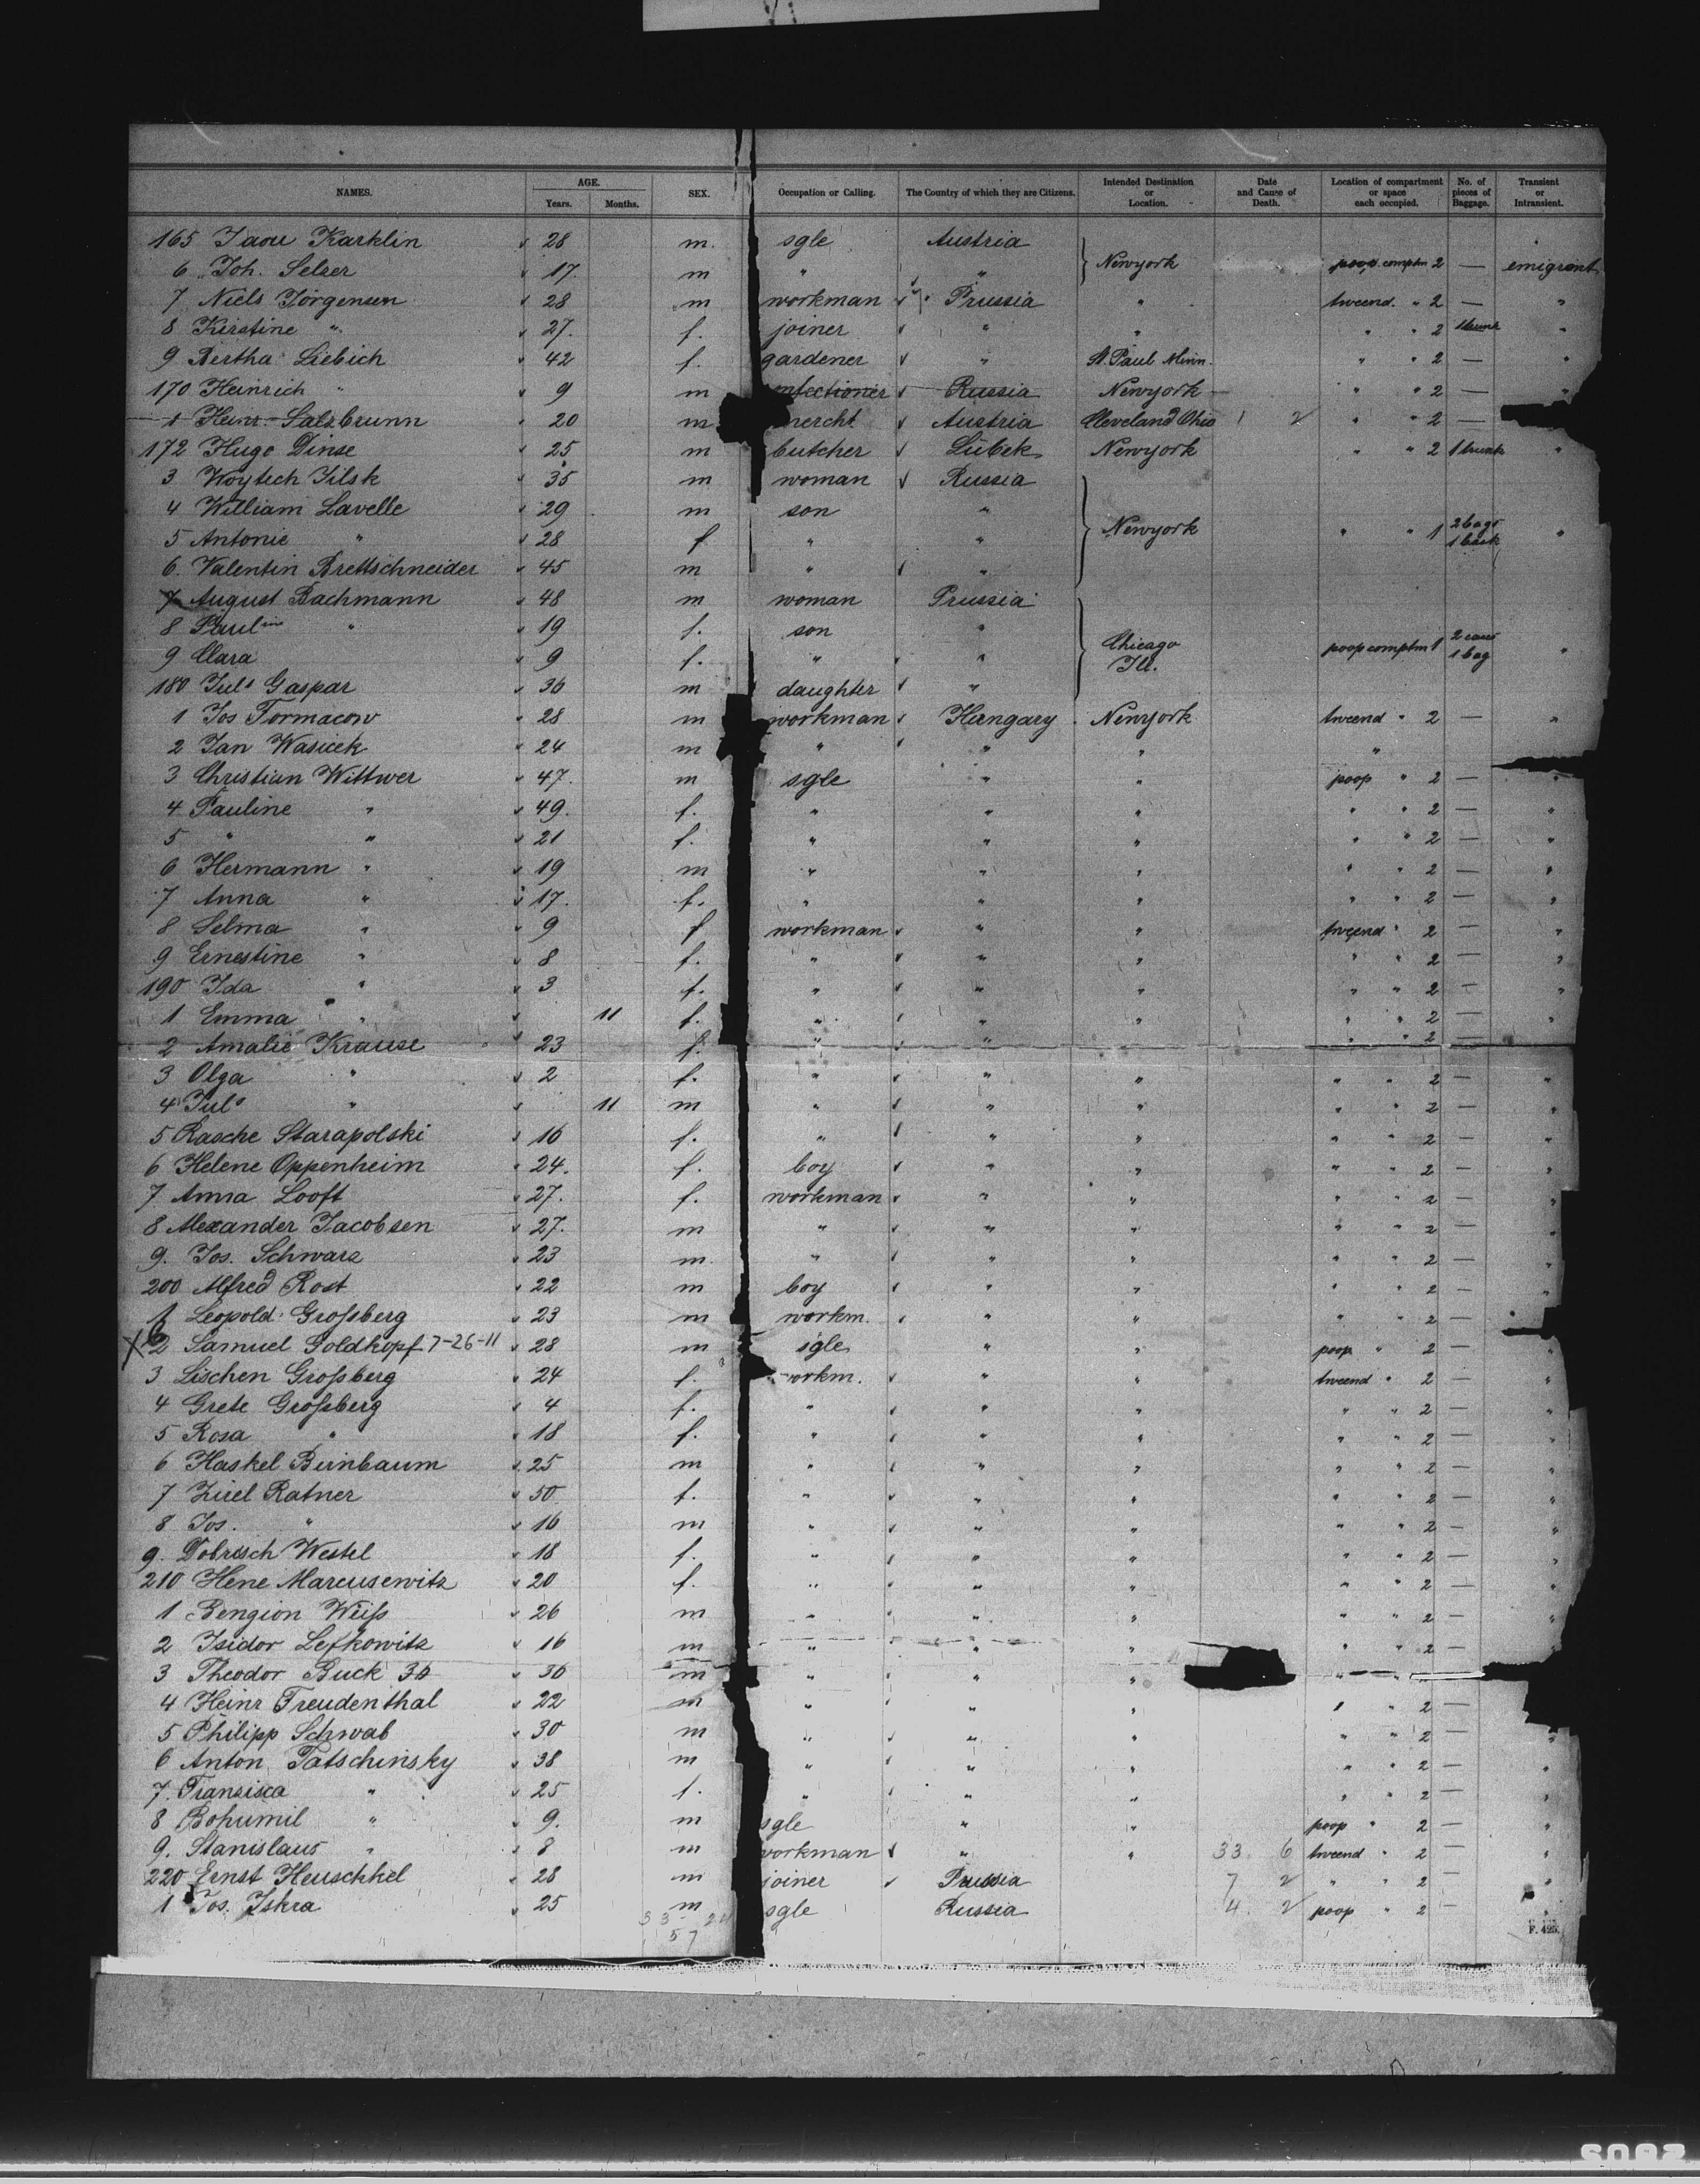 NAMES. AGE. Years. Months. SEX. Occupation or Calling. The Country of which they are Citizens. Intended Destination or Location. Date and Cause of Death. Location of compartment or space each occupied. No. of pieces of Baggage. Transient or Intransient.
165 Karklin 28 m. sgle Austria
6 Joh. Selzer 17. m " " Newyork poop. comptm 2 — emigrant
7 Niels Jörgensen 28 m workman Prussia " tweend. " 2 — "
8 Kirstine " 27. f. joiner " " " " 2 "
9 Bertha Liebich 42 f. gardener " St. Paul Minn. " " 2 — "
170 Heinrich " 9 m Russia Newyork " " 2 — "
1 Heinr. Salzbrunn 20 m mercht Austria Cleveland Ohio " " 2 —
172 Hugo Dinse 25 m butcher Lübek Newyork " " 2 1 trunk "
3 Woytech Jilsk 35 m woman Russia
4 William Lavelle 29 m son "
5 Antonie " 28 f " " Newyork " " 1 2 bags 1 bask "
6. Valentin Brettschneider 45 m " "
7 August Bachmann 48 m woman Prussia
8 Pauline " 19 f. son "
9 Clara 9 f. " " Chicago Ill. poop comptm 1 2 cases 1 bag "
180 Juls Gaspar 36 m daughter "
1 Jos Tormacow 28 m workman Hungary Newyork tweend " 2 — "
2 Jan Wasicek 24 m " " " "
3 Christian Wittwer 47. m sgle " " poop " 2 — "
4 Pauline " 49. f. " " " " " 2 — "
5 " " 21 f. " " " " " 2 — "
6 Hermann " 19 m " " " " " 2 — "
7 Anna " 17. f. " " " " " 2 — "
8 Selma " 9 f workman " " tweend " 2 — "
9 Ernestine " 8 f. " " " " " 2 — "
190 Ida " 3 f. " " " " " 2 — "
1 Emma " 11 f. " " " " " 2 — "
2 Amalie Krause 23 f. " " " " 2 —
3 Olga " 2 f. " " " " " 2 — "
4 Juls " 11 m " " " " " 2 — "
5 Rasche Starapolski 16 f. " " " " " 2 — "
6 Helene Oppenheim 24. f. boy " " " " 2 — "
7 Anna Looft 27. f. workman " " " " 2 — "
8 Alexander Jacobsen 27. m " " " " " 2 — "
9. Jos. Schwarz 23 m. " " " " " 2 — "
200 Alfred Rost 22 m boy " " " " 2 — "
1 Leopold Großberg 23 m workm. " " " " 2 — "
X 2 Samuel Goldkopf 7-26-11 28 m sgle " " poop " 2 — "
3 Lischen Großberg 24 f. workm. " " tweend " 2 — "
4 Grete Großberg 4 f. " " " " " 2 — "
5 Rosa " 18 f. " " " " " 2 — "
6 Haskel Birnbaum 25 m " " " " " 2 — "
7 Ratner 50 f. " " " " " 2 — "
8 Jos. " 16 m " " " " " 2 — "
9. Dobresch Westel 18 f. " " " " " 2 — "
210 Hene Marcusewitz 20 f. " " " " " 2 — "
1 Bengion Weiß 26 m " " " " " 2 — "
2 Isidor Lefkowitz 16 m " " " " " 2 — "
3 Theodor Buck 36 36 m " " " " "
4 Heinr Freudenthal 22 m " " " " " 2 — "
5 Philipp Schwab 30 m " " " " " 2 — "
6 Anton Tatschinsky 38 m " " " " " 2 — "
7. Fransisca " 25 f. " " " " " 2 — "
8 Bohumil " 9. m sgle " " poop " 2 — "
9. Stanislaus " 8 m workman " " 33 6 tweend " 2 — "
220 Ernst Heuschkel 28 m joiner Prussia 7 2 " " 2 — "
1 Jos. Iskra 25 m sgle Russia 4 2 poop " 2 — "
33 24
57
F. 425.